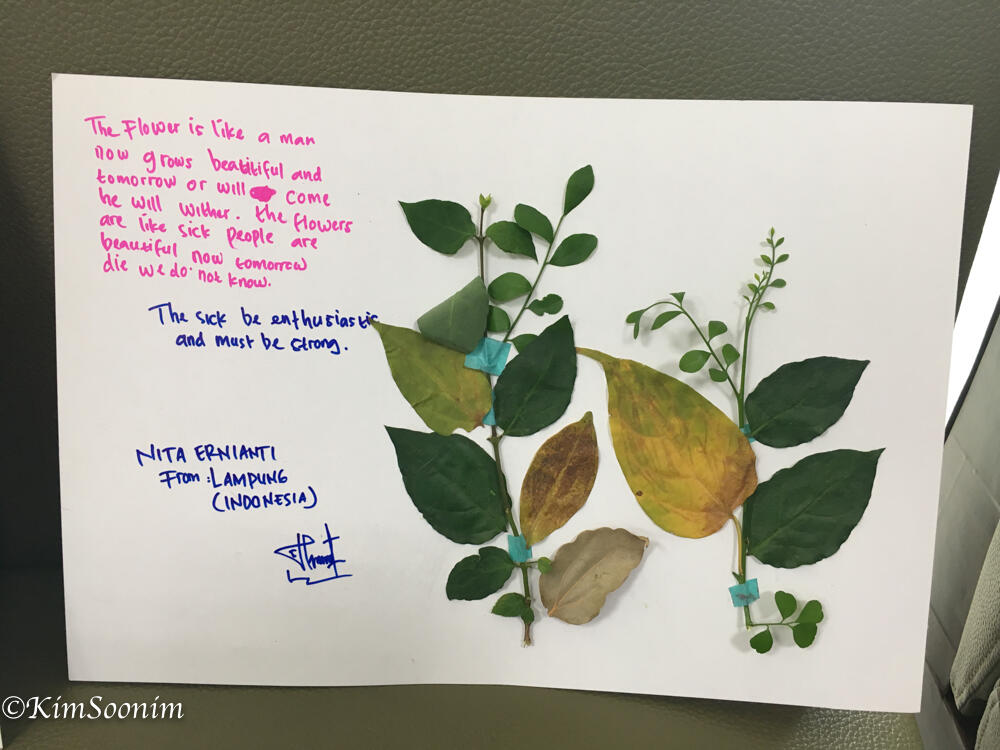 The Flower is like a man
now grows beatitiful and
tomorrow or will come
he will wither. the flowers
are like sick people are
beautiful now tomorrow
die we do not know.
The sick be enthusiastic
and must be strong.
NITA ERNIANTI
From : LAMPUNG
(INDONESIA)
©KimSoonim